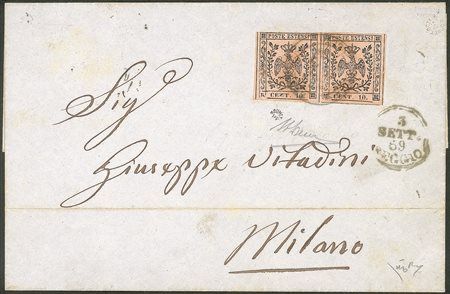 POSTE ESTENSI POSTE ESTENSI
CENT. 10. CENT. 10.
3
SETT.
59
REGGIO
Sig.
Giuseppe Vitadini
Milano